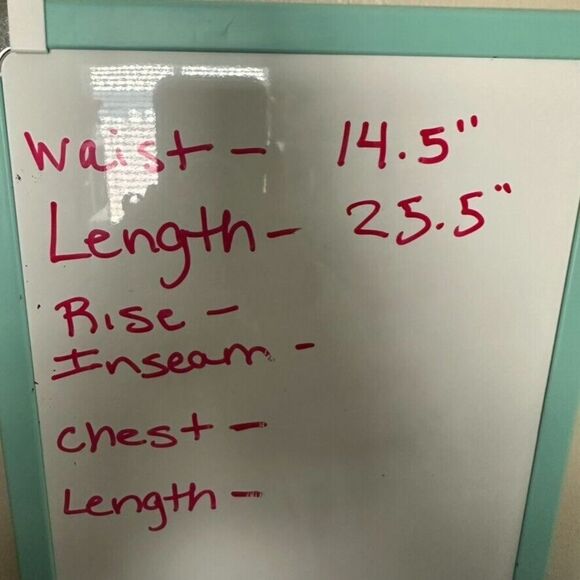 Waist - 14.5"
Length - 25.5"
Rise -
Inseam -
Chest -
Length -